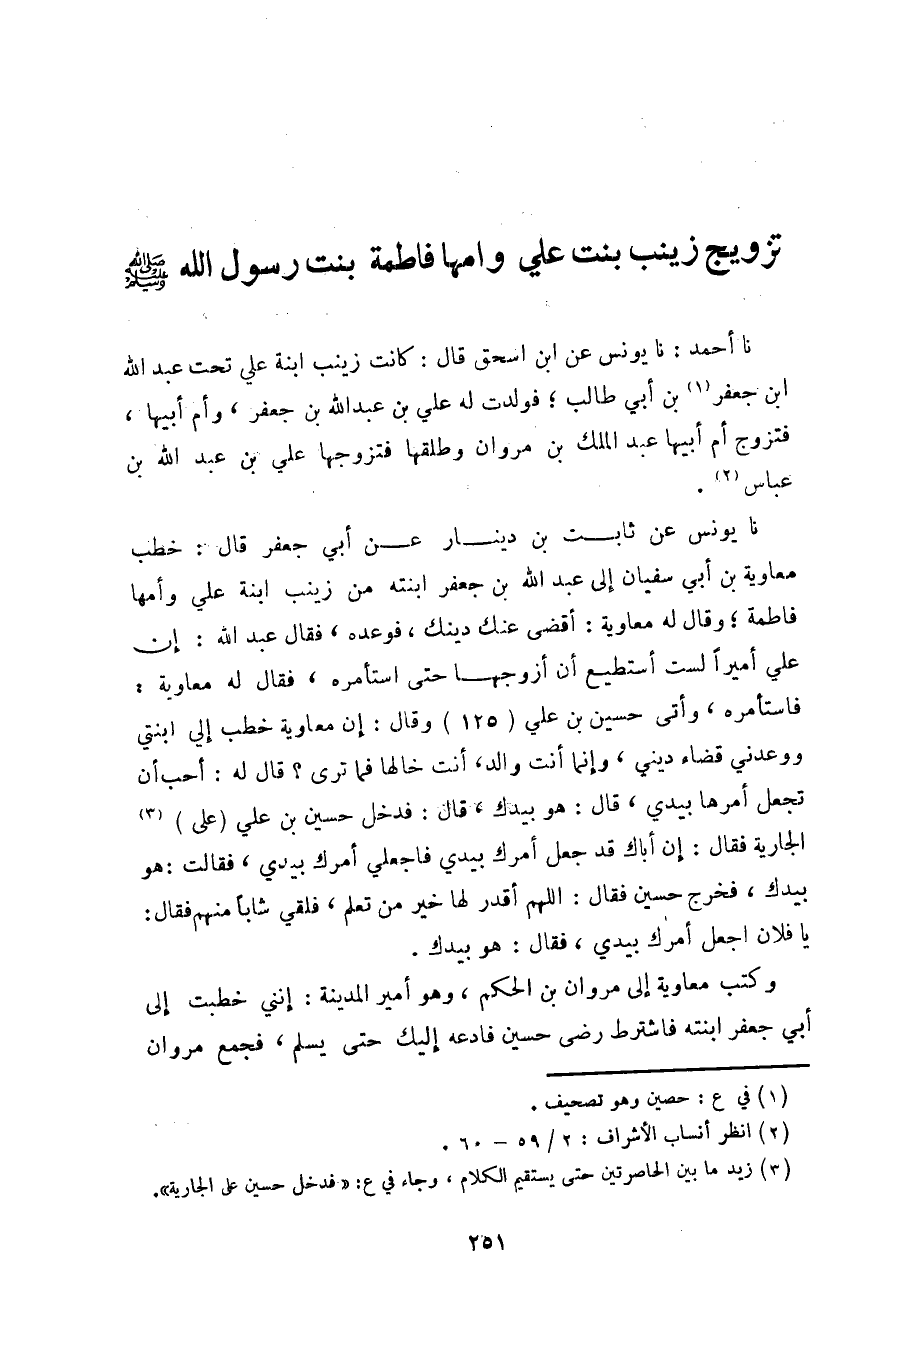 تزويج زينب بنت علي وامها فاطمة بنت رسول الله ﷺ
نا أحمد : نا يونس عن ابن اسحق قال : كانت زينب ابنة علي تحت عبد الله
ابن جعفر (١) بن أبي طالب ؛ فولدت له علي بن عبدالله بن جعفر ، وأم أبيها ،
فتزوج أم أبيها عبد الملك بن مروان وطلقها فتزوجها علي بن عبد الله بن
عباس (٢) .
نا يونس عن ثابت بن دينار عن أبي جعفر قال : خطب
معاوية بن أبي سفيان إلى عبد الله بن جعفر ابنته من زينب ابنة علي وأمها
فاطمة ؛ وقال له معاوية : أقضى عنك دينك ، فوعده ، فقال عبد الله : إن
علي أميراً لست أستطيع أن أزوجها حتى استأمره ، فقال له معاوية :
فاستأمره ، وأتى حسين بن علي ( ١٢٥ ) وقال : إن معاوية خطب إلي ابنتي
ووعدني قضاء ديني ، وإنما أنت والد، أنت خالها فما ترى ؟ قال له : أحب أن
تجعل أمرها بيدي ، قال : هو بيدك ، قال : فدخل حسين بن علي (على ) (٣)
الجارية فقال : إن أباك قد جعل أمرك بيدي فاجعلي أمرك بيدي ، فقالت :هو
بيدك ، فخرج حسين فقال : اللهم أقدر لها خير من تعلم ، فلقي شاباً منهم فقال:
يا فلان اجعل أمرك بيدي ، فقال : هو بيدك .
وكتب معاوية إلى مروان بن الحكم ، وهو أمير المدينة : إنني خطبت إلى
أبي جعفر ابنته فاشترط رضى حسين فادعه إليك حتى يسلم ، فجمع مروان
(١) في ع : حصين وهو تصحيف .
(٢) انظر أنساب الأشراف : ٢ / ٥٩ – ٦٠ .
(٣) زيد ما بين الحاصرتين حتى يستقيم الكلام ، وجاء في ع: «فدخل حسين على الجارية».
٢٥١